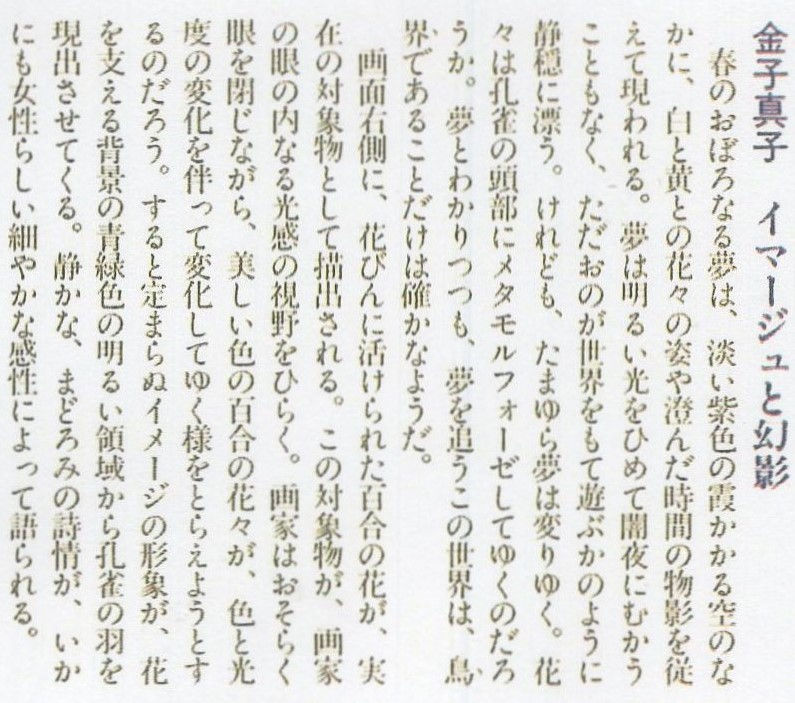 金子真子　イマージュと幻影
　春のおぼろなる夢は、淡い紫色の霞かかる空のな
かに、白と黄との花々の姿や澄んだ時間の物影を従
えて現われる。夢は明るい光をひめて闇夜にむかう
こともなく、ただおのが世界をもて遊ぶかのように
静穏に漂う。けれども、たまゆら夢は変りゆく。花
々は孔雀の頭部にメタモルフォーゼしてゆくのだろ
うか。夢とわかりつつも、夢を追うこの世界は、鳥
界であることだけは確かなようだ。
　画面右側に、花びんに活けられた百合の花が、実
在の対象物として描出される。この対象物が、画家
の眼の内なる光感の視野をひらく。画家はおそらく
眼を閉じながら、美しい色の百合の花々が、色と光
度の変化を伴って変化してゆく様をとらえようとす
るのだろう。すると定まらぬイメージの形象が、花
を支える背景の青緑色の明るい領域から孔雀の羽を
現出させてくる。静かな、まどろみの詩情が、いか
にも女性らしい細やかな感性によって語られる。